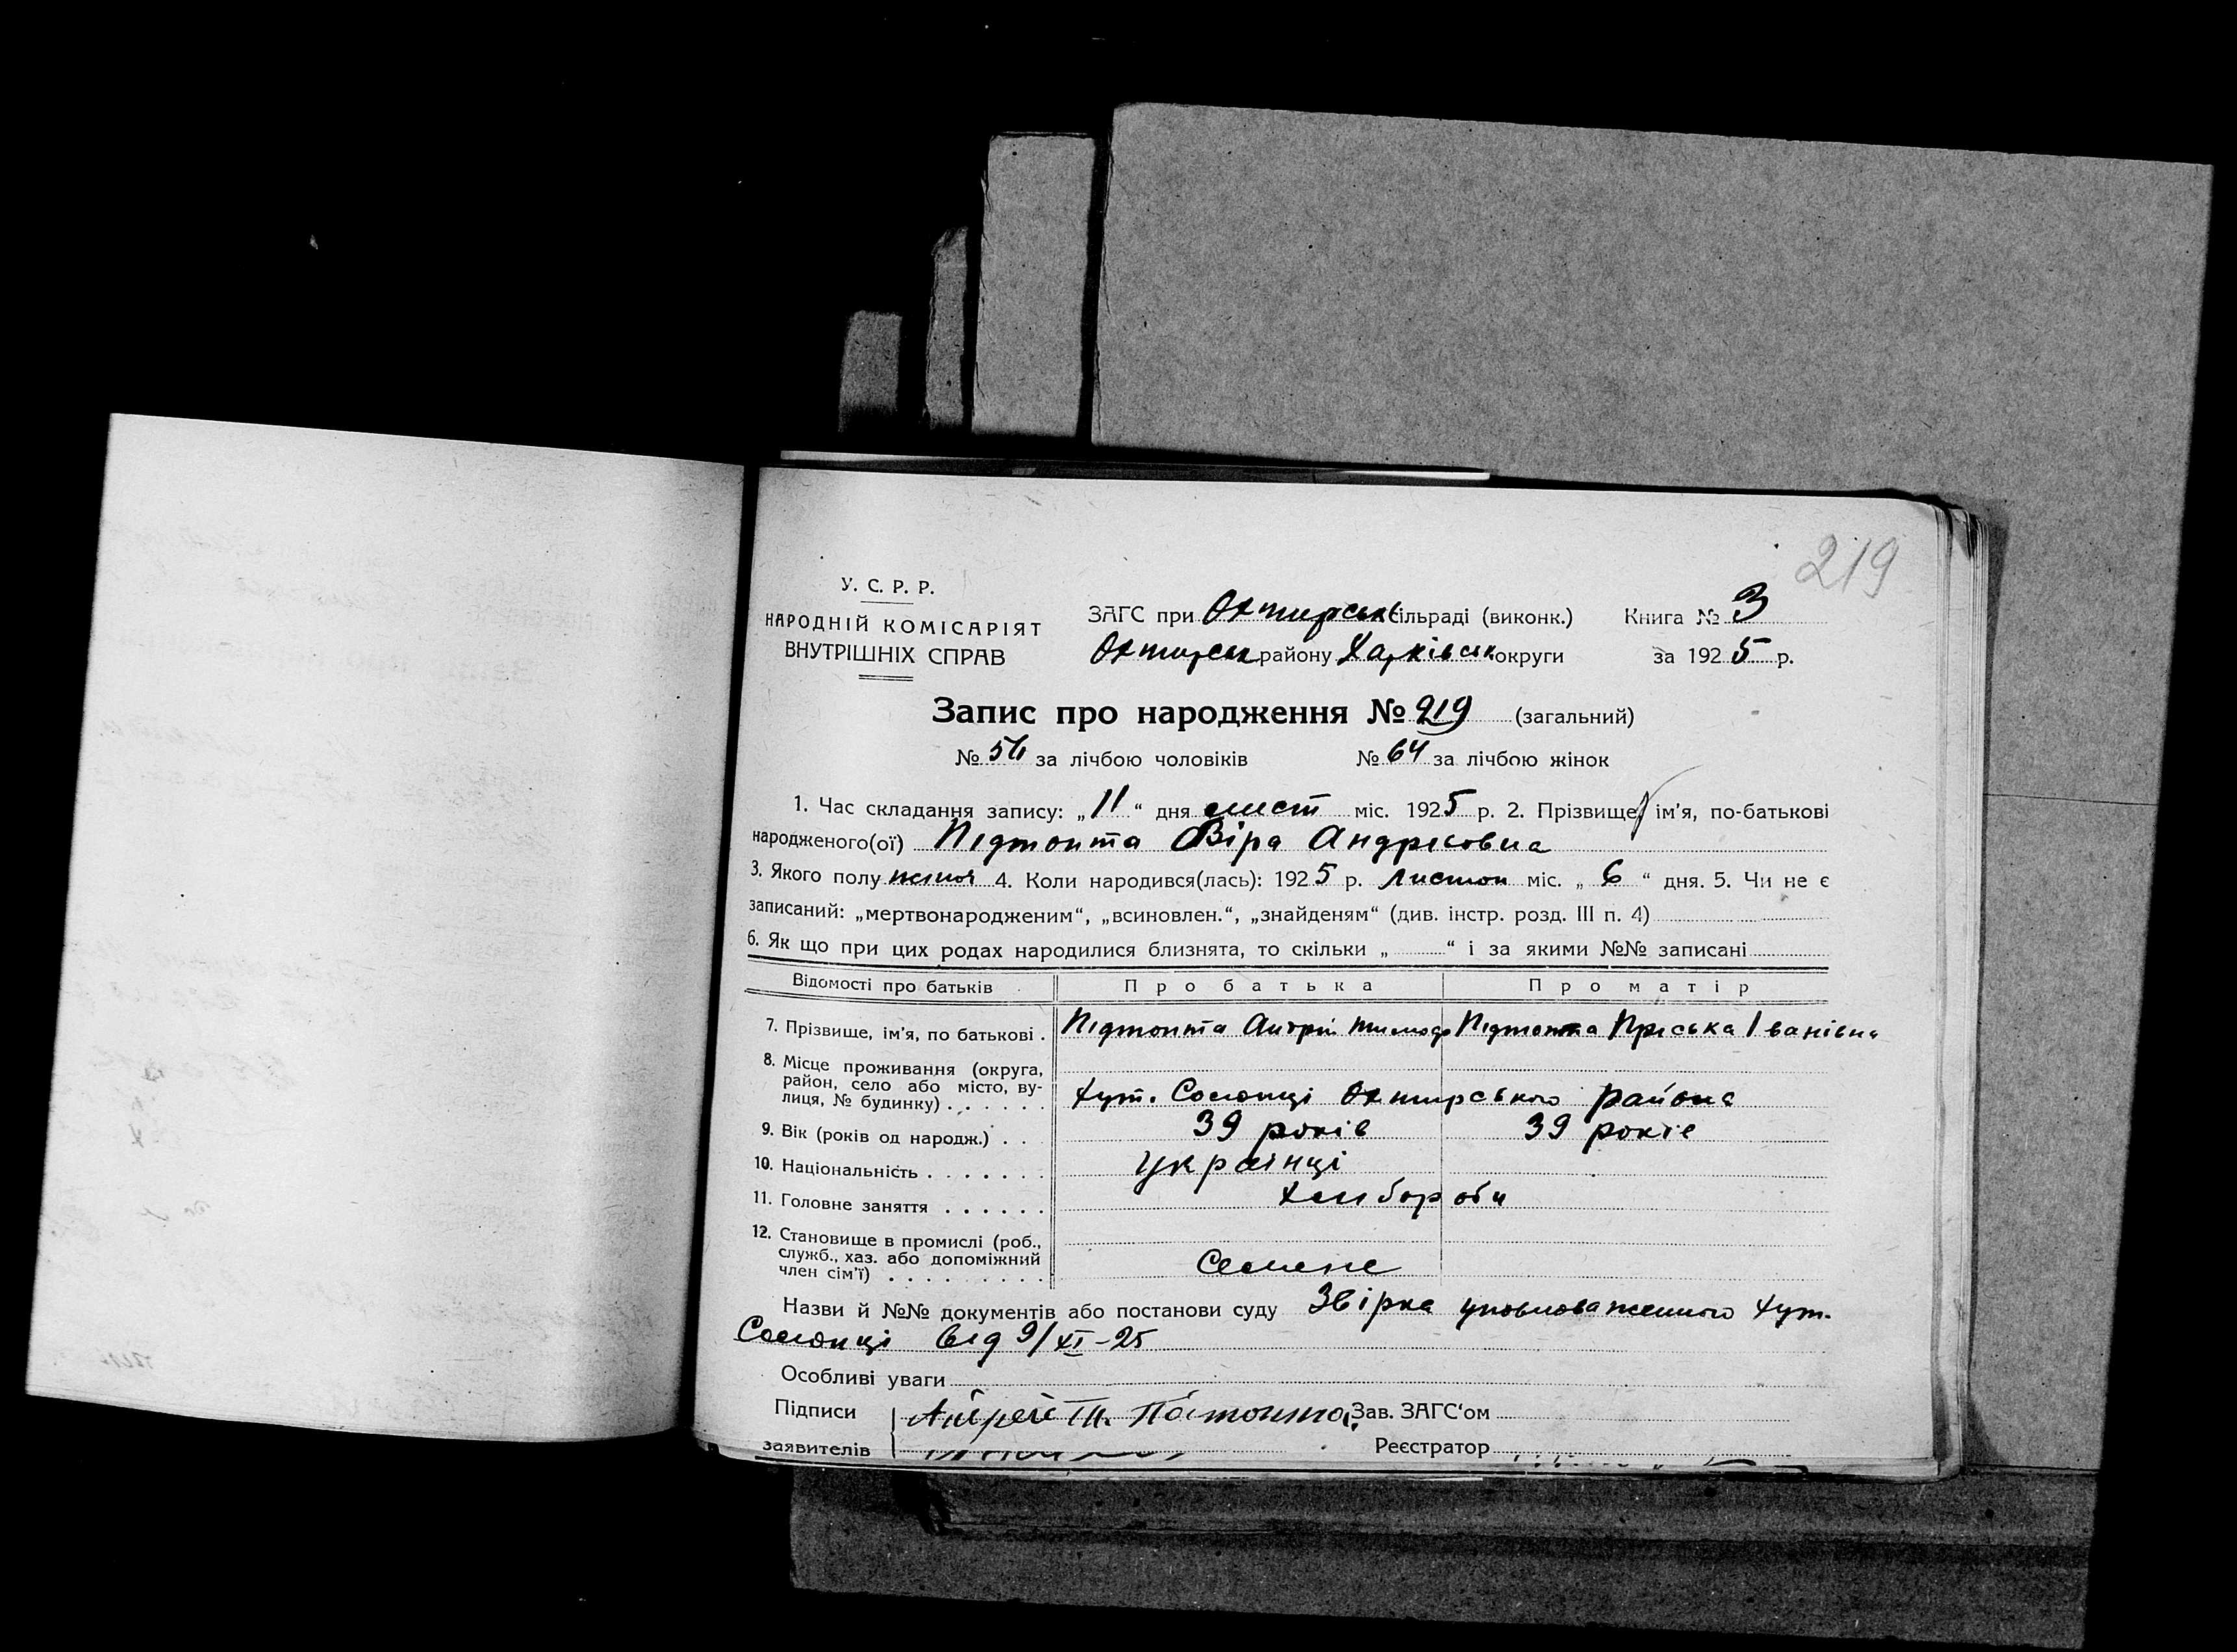 219
У. С. Р. Р.
НАРОДНІЙ КОМІСАРІЯТ
ВНУТРІШНІХ СПРАВ
ЗАГС при Охтирськ сільраді (виконк.) Книга № 3
Охтирськ району Харківськ округи за 1925 р.
Запис про народження № 219 (загальний)
№ за лічбою чоловіків № 64 за лічбою жінок
1. Час складання запису: „11“ дня лист міс. 1925 р. 2. Прізвище, ім'я, по-батькові
народженого(ої) Підтопта Віра Андрієвна
3. Якого полу жіноч 4. Коли народився(лась): 1925 р. Листоп міс. „6“ дня. 5. Чи не є
записаний: „мертвонародженим“, „всиновлен.“, „знайденям“ (див. інстр. розд. III п. 4)
6. Як що при цих родах народилися близнята, то скільки „ “ і за якими №№ записані
Відомості про батьків Про батька Про матір
7. Прізвище, ім'я, по батькові . Підтопта Тимоф Підтопта Пріська Іванівна
8. Місце проживання (округа,
район, село або місто, ву-
лиця, № будинку) . . . . . . хут. Солонці Охтирського района
9. Вік (років од народж.) . . . 39 років 39 років
10. Національність . . . . . . . українці
11. Головне заняття . . . . . . хлібороби
12. Становище в промислі (роб.,
служб., хаз. або допоміжний
член сім'ї) . . . . . . . . .
Назви й №№ документів або постанови суду Звірка уповноваженного хут.
Солонці від 9/XI-25
Особливі уваги
Підписи Зав. ЗАГС'ом
заявителів Реєстратор